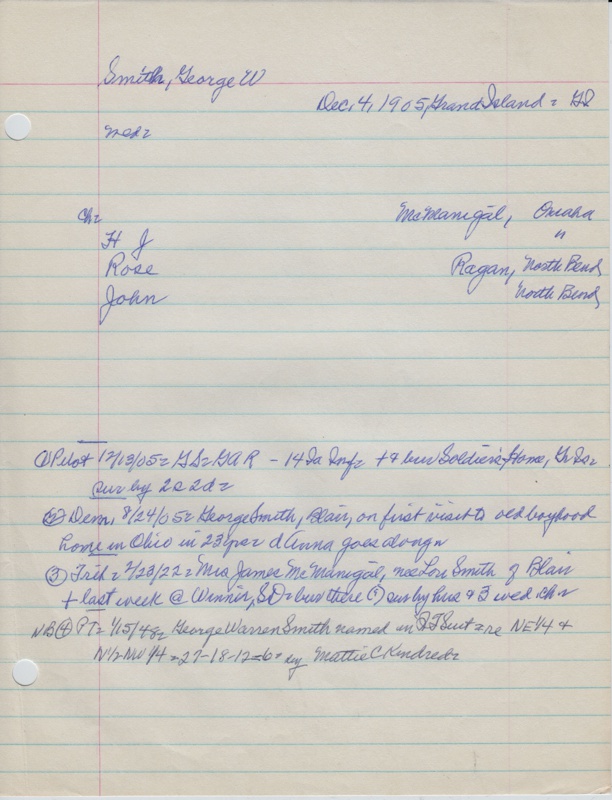 Smith, George W
Dec, 4, 1905, Grand Island = GS
med=
ch=
McManigal, Omaha
H J "
Rose Ragan, North Bend
John North Bend
① Pilot 12/13/05= GS= GAR - 14 Ia Inf= + & bur Soldiers Home, Gr Is=
sur by 2s 2d=
② Dem, 8/24/05= George Smith, Blair, on first visit to old boyhood
home in Ohio in 23 yrs= d Anna goes along=
③ Trib= 2/23/22= Mrs James McManigal, nee Lou Smith of Blair
+ last week @ Winner, SD= bur there (?) sur by hus & 3 wed ch=
NB ④ PT= 1/15/48= George Warren Smith named in QT Suit= re NE 1/4 &
N 1/2 NW 1/4= 27-18-12= 6= by Mattie C Kindred=